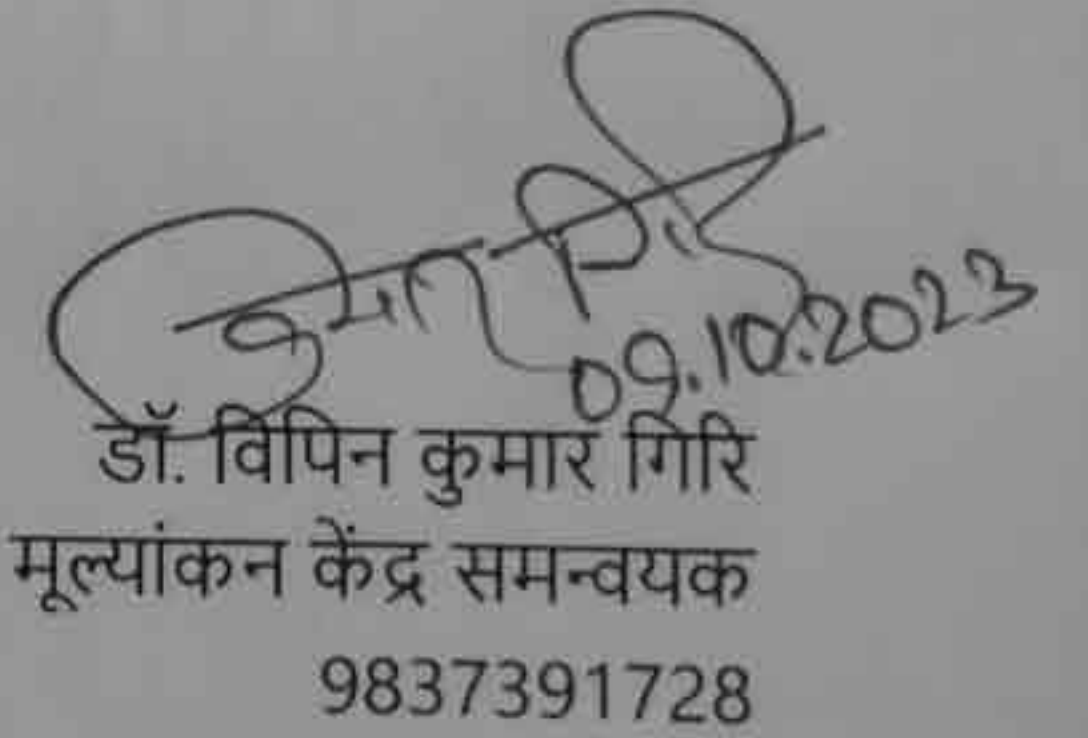 09.10.2023
डॉ. विपिन कुमार गिरि
मूल्यांकन केंद्र समन्वयक
9837391728